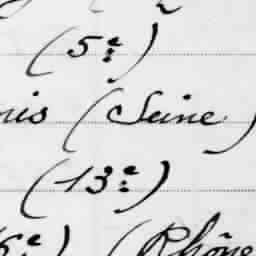 (5e)
nis (Seine)
(13e)
6e) (Rhône